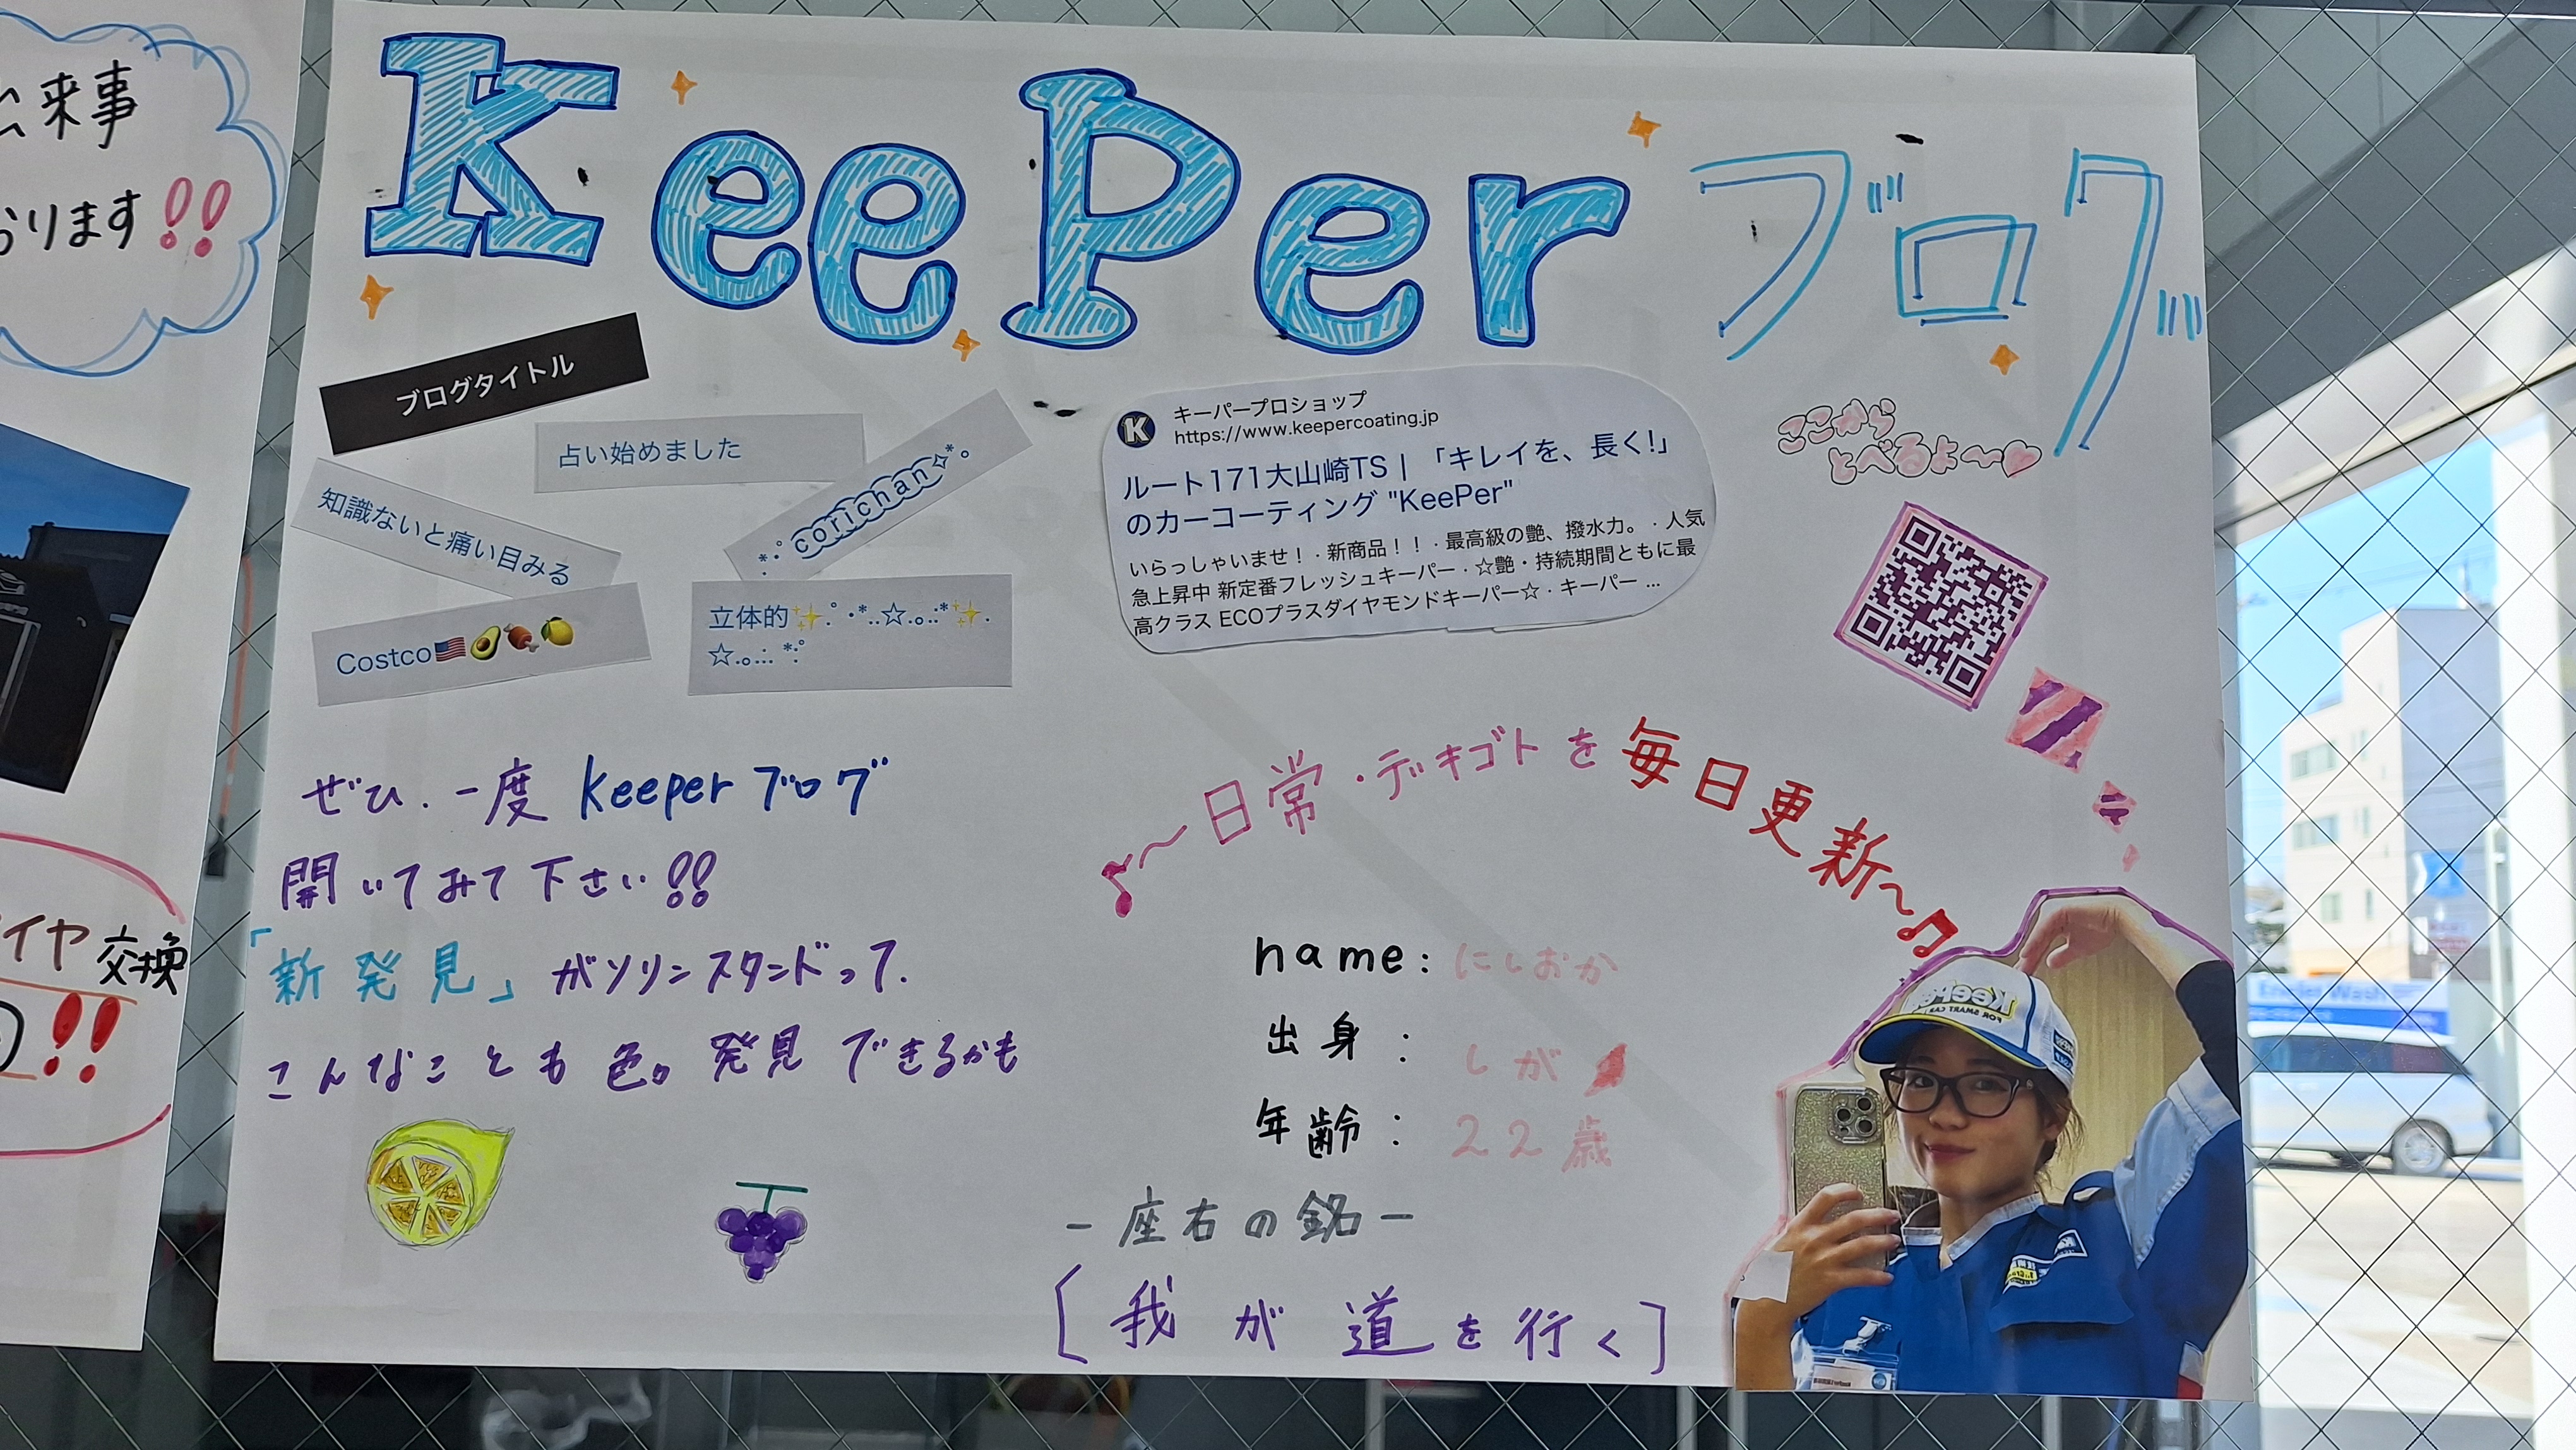 来事
ります!!
イヤ交換
!!
KeePerブログ
ブログタイトル
占い始めました
*:･ﾟcorichan✧*｡
知識ないと痛い目みる
Costco🇺🇸🥑🍖🍋
立体的✨.ﾟ･*..☆.｡.:*✨.
☆.｡.:. *:ﾟ
キーパープロショップ
https://www.keepercoating.jp
ルート171大山崎TS | 「キレイを、長く!」
のカーコーティング "KeePer"
いらっしゃいませ！ · 新商品！！ · 最高級の艶、撥水力。 · 人気
急上昇中 新定番フレッシュキーパー · ☆艶・持続期間ともに最
高クラス ECOプラスダイヤモンドキーパー☆ · キーパー ...
ここから
とべるよ～♡
ぜひ.一度 keeperブログ
開いてみて下さい!!
「新発見」ガソリンスタンドって.
こんなことも色々発見できるかも
♪～日常・デキゴトを毎日更新～♫
name:にしおか
出身:しが
年齢:22歳
-座右の銘-
[我が道を行く]
KeePer
FOR SMART CAR